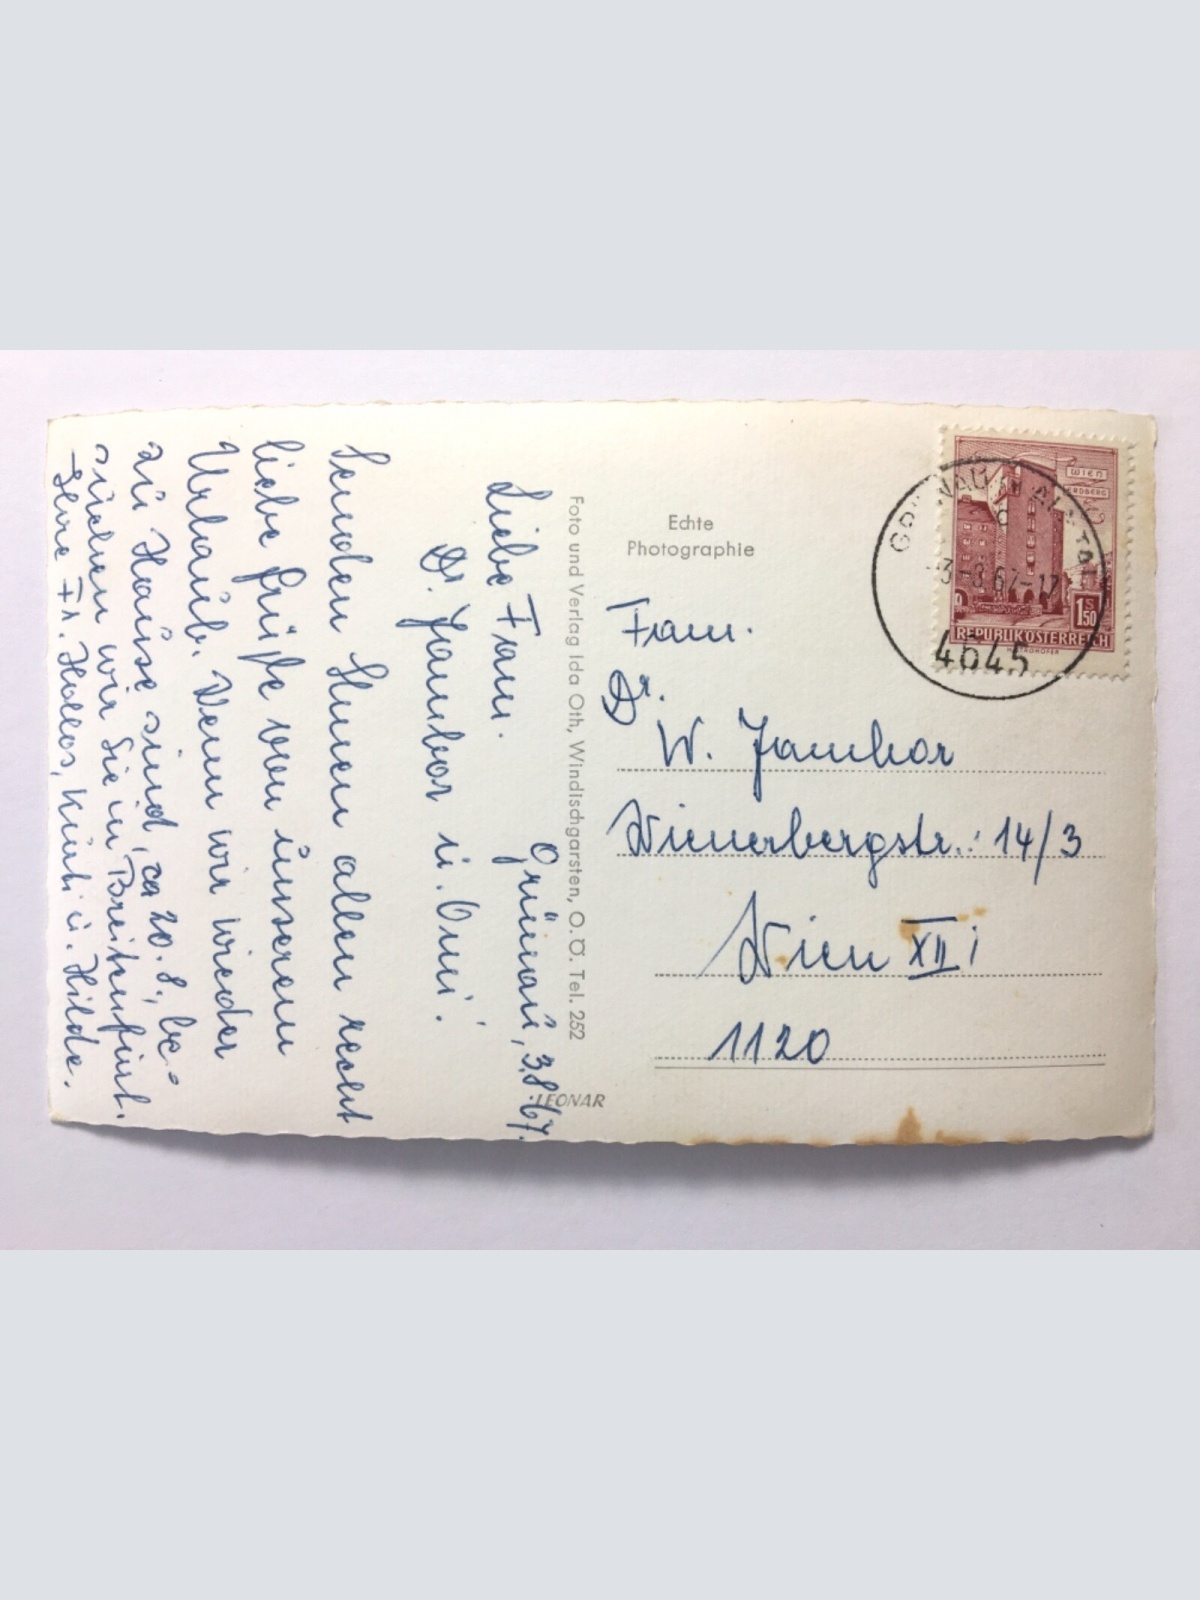 Grünau, 3.8.67.
Liebe Fam.
Dr. Jambor u. Omi!
Senden Ihnen allen recht
liebe Grüße von unserem
Urlaub. Wenn wir wieder
zu Hause sind, ca 20.8., be-
suchen wir Sie in Breitenfurt.
Ihre Fr. Hollos, Kurti u. Hilde.
Foto und Verlag Ida Oth, Windischgarsten, O.Ö. Tel. 252
LEONAR
Echte
Photographie
Fam.
Dr.
W. Jambor
Wienerbergstr.: 14/3
Wien XII
1120
WIEN
ERDBERG
1 S 50
REPUBLIK ÖSTERREICH
GRÜNAU IM ALMTAL
-3.-8.67-17
4645